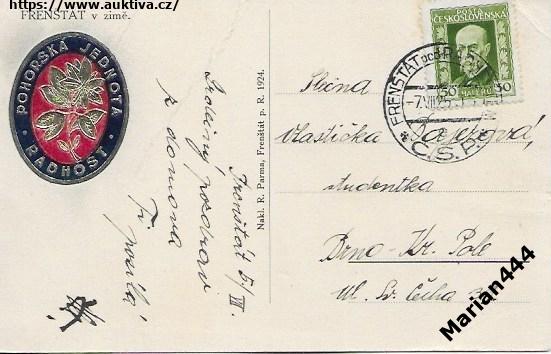 https://www.auktiva.cz/
FRENŠTÁT v zimě.
POHORSKÁ JEDNOTA
· RADHOŠŤ ·
Frenštát 5/III.
Srdečný pozdrav
z domova
Ti posílá
Nakl. R. Parma, Frenštát p. R. 1924.
POŠTA
ČESKOSLOVENSKÁ
50 50
HALÉŘŮ
FRENŠTÁT pod
-7.VII.25
Č.S.R.
Slečna
Vlastička
studentka
Brno - Kr. Pole
Ul. Sv. Čecha
Marian444